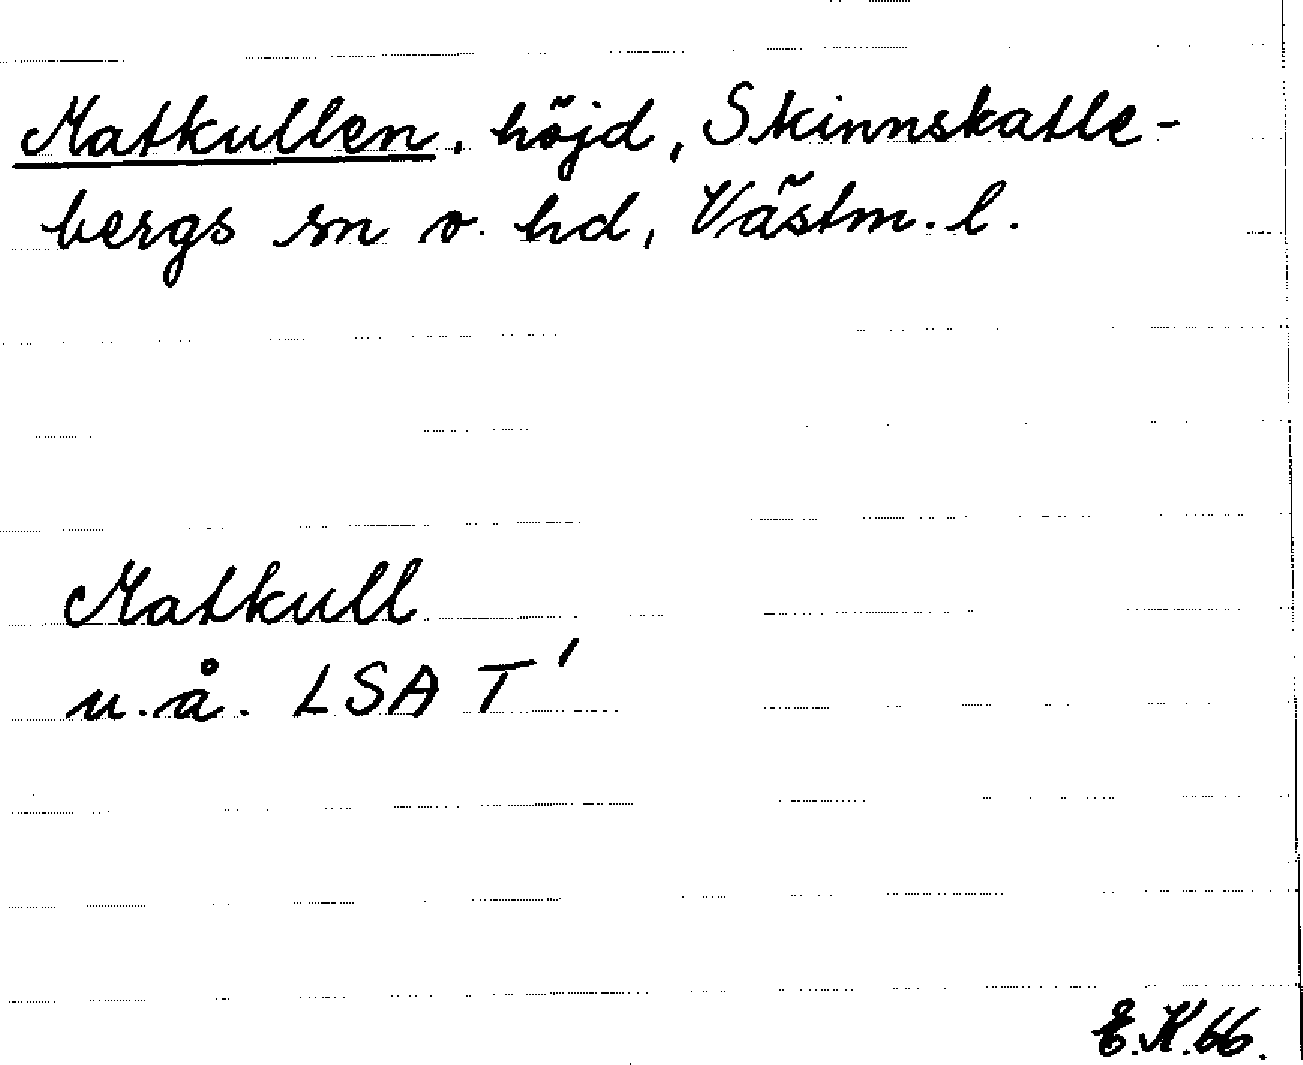 Matkullen, höjd, Skinnskatte-
bergs sn o. hd, Västm. l.
Matkull
u.å. LSA T'
E.K.66.